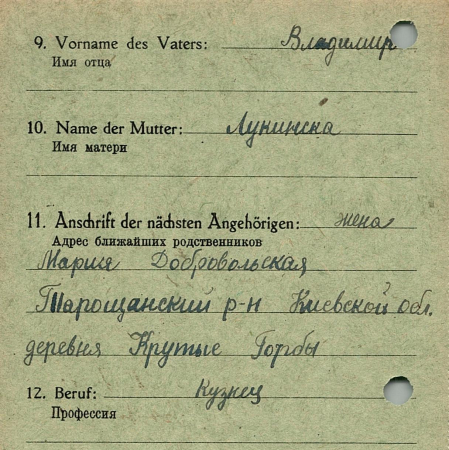 9. Vorname des Vaters: Владимир
Имя отца
10. Name der Mutter: Лукинска
Имя матери
11. Anschrift der nächsten Angehörigen: жена
Адрес ближайших родственников
Мария Добровольская
Тарощанский р-н Киевской обл.
деревня Крутые Горбы
12. Beruf: Кузнец
Профессия